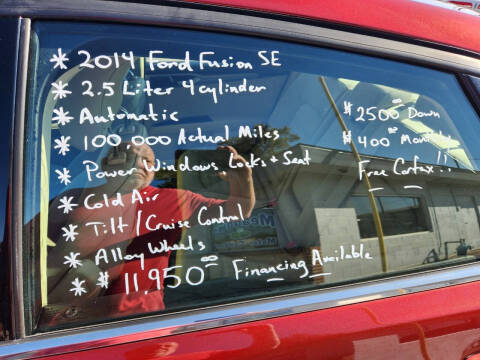 * 2014 Ford Fusion SE
* 2.5 Liter 4 cylinder
* Automatic
* 100,000 Actual Miles
* Power Windows Locks + Seat
* Cold Air
* Tilt / Cruise Control
* Alloy Wheels
* $11,950⁰⁰ Financing Available
$2500⁰⁰ Down
$400⁰⁰
Free Carfax!!